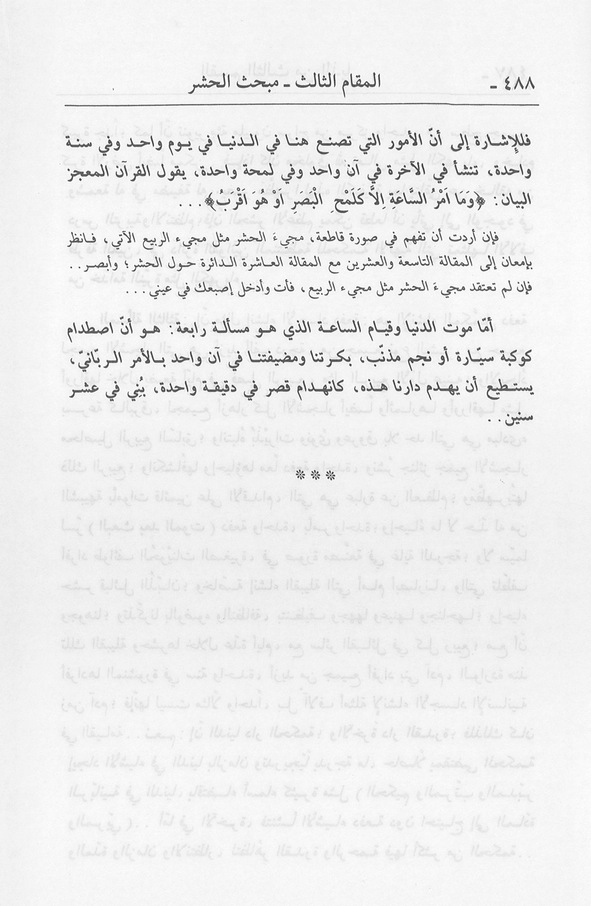 ٤٨٨ - المقام الثالث - مبحث الحشر
فللإشارة إلى أنّ الأمور التي تصنع هنا في الدنيا في يوم واحد وفي سنة
واحدة، تنشأ في الآخرة في آن واحد وفي لمحة واحدة، يقول القرآن المعجز
البيان: ﴿وَمَا أَمْرُ السَّاعَةِ إِلَّا كَلَمْحِ الْبَصَرِ أَوْ هُوَ أَقْرَبُ﴾...
فإن أردت أن تفهم في صورة قاطعة، مجيءَ الحشر مثل مجيء الربيع الآتي، فانظر
بإمعان إلى المقالة التاسعة والعشرين مع المقالة العاشرة الدائرة حول الحشر؛ وأبصر..
فإن لم تعتقد مجيءَ الحشر مثل مجيء الربيع، فأت وأدخل إصبعك في عيني...
أمّا موت الدنيا وقيام الساعة الذي هو مسألة رابعة: هو أنّ اصطدام
كوكبة سيّارة أو نجم مذنّب، بكرتنا ومضيفتنا في آن واحد بالأمر الربّانيّ،
يستطيع أن يهدم دارنا هذه، كانهدام قصر في دقيقة واحدة، بُني في عشر
سنين..
* * *